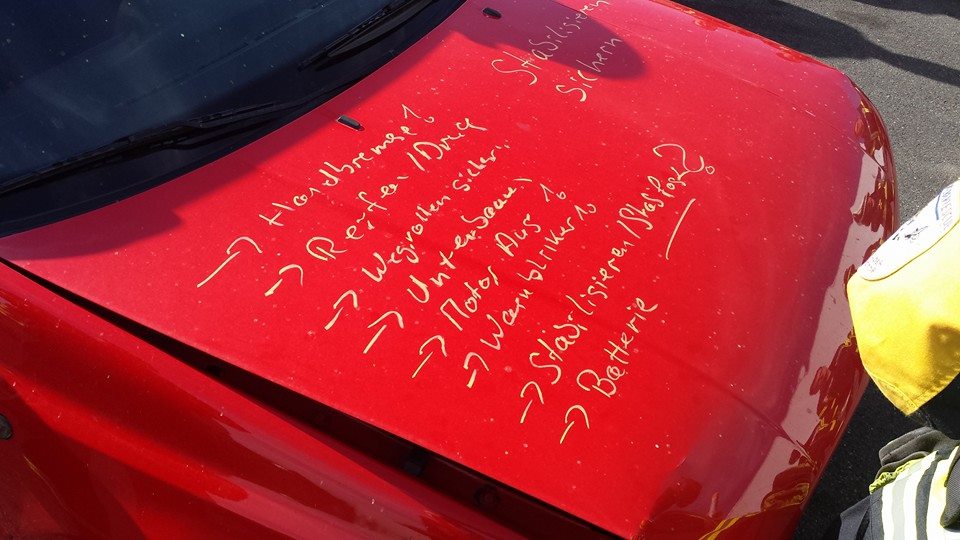 Stabilisieren
Sichern
→ Handbremse!
→ Reifen/Druck
→ Wegrollen sichern
→ Unterbauen
→ Motor Aus!
→ Warnblinker!
→ Stabilisieren
→ Batterie